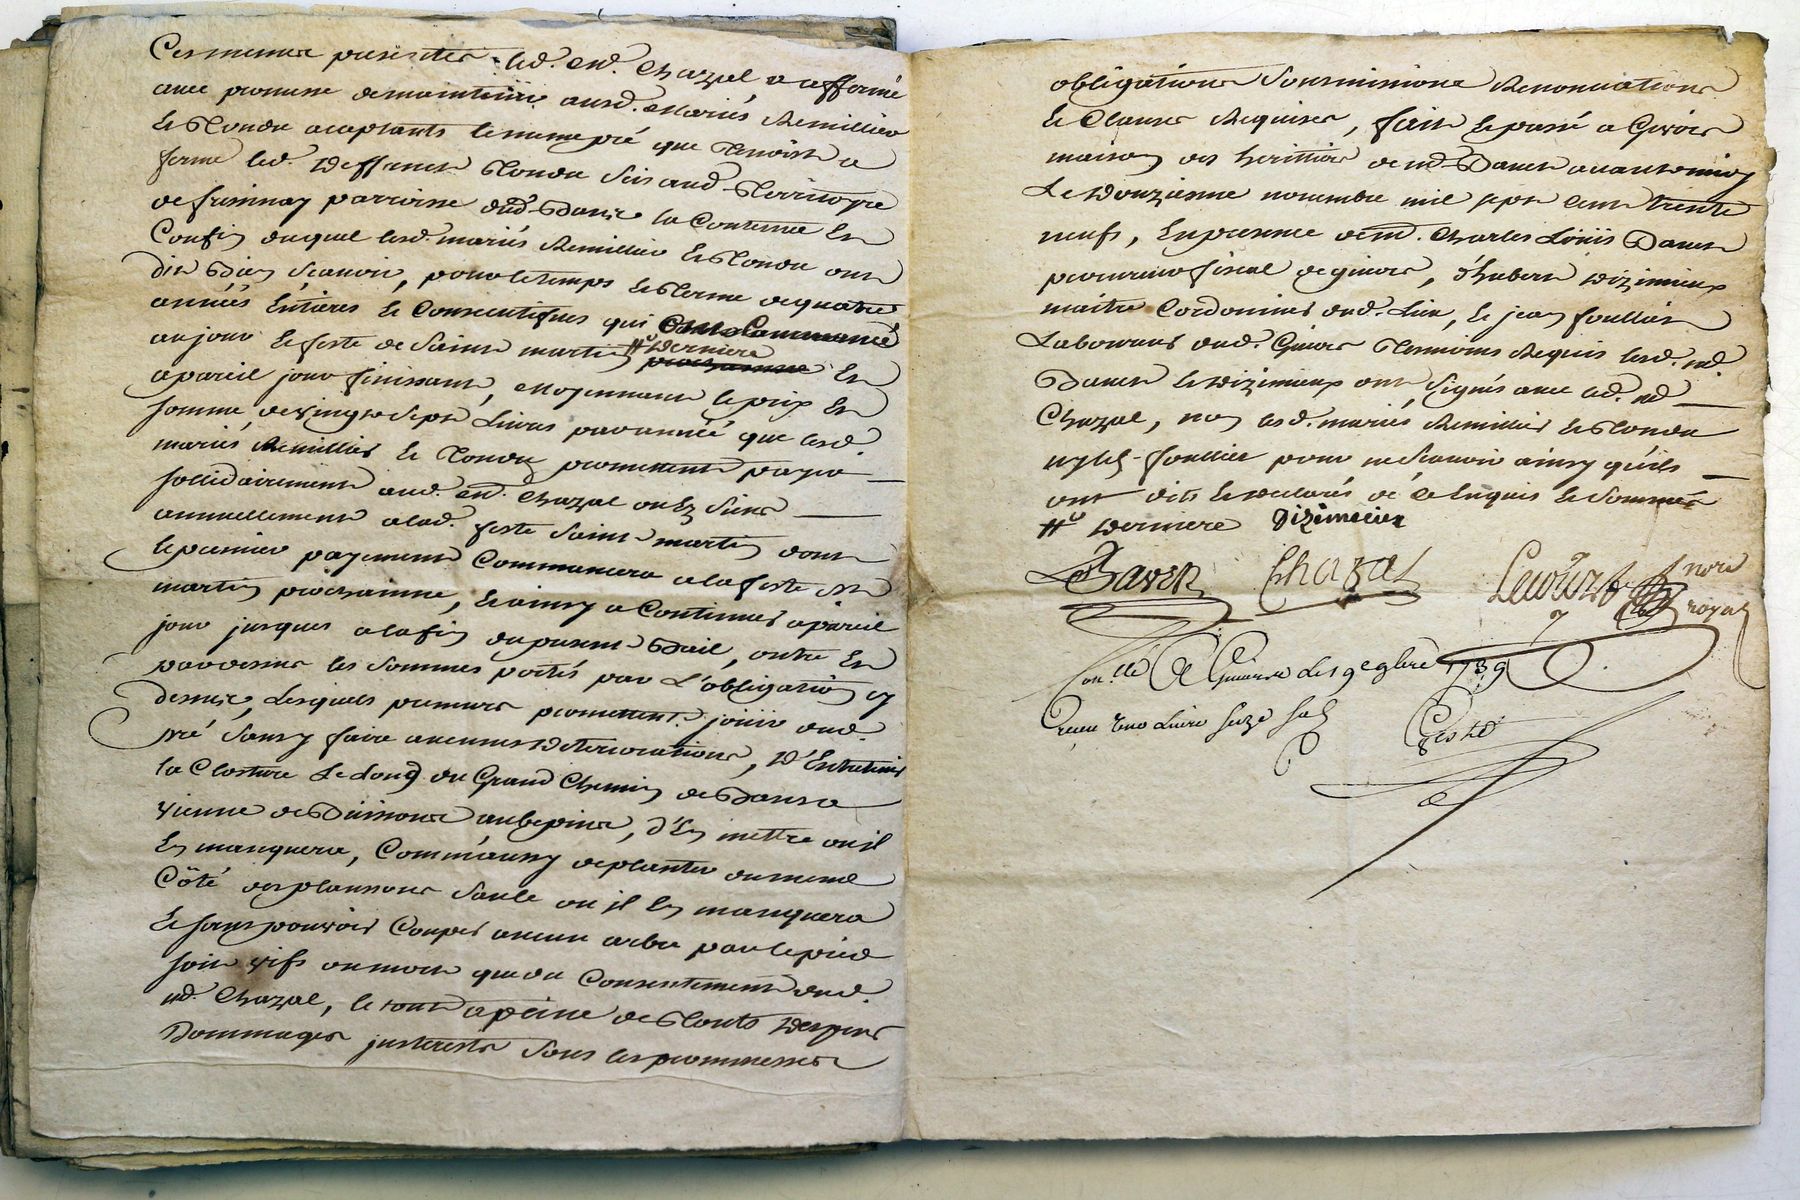 Ces mesmes presentes led. md. Chazal a affermé
avec promesse de maintenir ausd. mariés Remillier
et Tondu acceptants le mesme pré que tenoit a
ferme led. deffunct Tondu sis aud. Territoyre
de fressinay parroisse dud. la Contenue et
Confin duquel lesd. mariés Remillier et Tondu ont
dit bien sçauoir, pour le temps et terme de quatre
années entieres et Consecutifues qui ont Commancé
au jour et feste de Saint martin derniere prochainne et
a pareil jour finissant, moyennant le prix et
somme de vingt sept Livres par année que lesd.
mariés Remillier et Tondu promettent payer
sollidairement aud. md. Chazal ou es Siens
annuellement a lad. feste Saint martin dont
le premier payement Commancera a la feste St
martin prochainne, et ainsy a Continuer a pareil
jour jusques a la fin du present Bail, outre et
par dessus les sommes portés par L'obligation cy
dessus, Lesquels preneurs promettent joüir dud.
pré sans y faire aucunes deteriorations, d'Entretenir
la Closture Le Long du Grand Chemin de
vienne de Buissons aubepins, d'En mettre ou il
En manquera, Comm'aussy de planter du mesme
Côté des plansons saule ou il En manquera
et sans pouvoir Couper aucun arbre par le pied
soit vifs ou mort que du Consentement dud.
md. Chazal, le tout a peine de touts depens
Dommages jnterests sous les promesses
obligations Soumissions Renonciations
et Clauses Requises, fait et passé a Givors
maison des heritiers de md. Bauet auant midy
Le douzieme novembre mil sept cent trente
neuf, En presence de md. Charles Loüis Bauet
procureur fiscal de givors, d'hubert dizimieux
maitre Cordonnier dud. Lieu, et jean foullier
Laboureur dud. Givors Tesmoins Requis lesd. md.
Bauet et dizimieux ont signés avec led. md
Chazal, non lesd. mariés Remillier et Tondu
ny led. foullier pour ne sçauoir ainsy qu'ils
ont dits et declarés de ce Enquis et Sommés
derniere Dizimieux
Bavet Chazal Lecourt nore
royal
Con.llé A Givors Le 19 9bre 1739
Receu une Livre seize sols